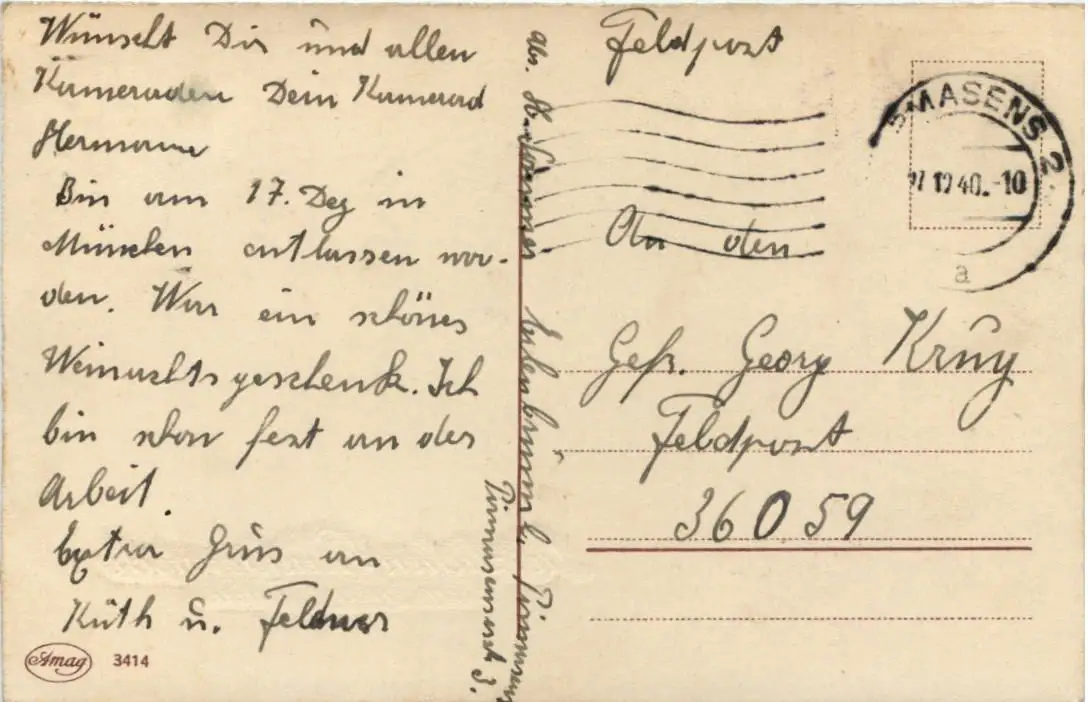 Wünscht Dir und allen
Kameraden Dein Kamerad
Hermann
Bin am 17. Dez in
München entlassen wor-
den. War ein schönes
Weinachtsgeschenk. Ich
bin schon fest an der
Arbeit.
Extra Grüs an
Küth u. Feldner
Amag 3414
Abs. H. Sommer
Pirmasenserst 3.
Feldpost
MASENS 2
12 40.-10
a
An den
Gefr. Georg Krüg
Feldpost
36059